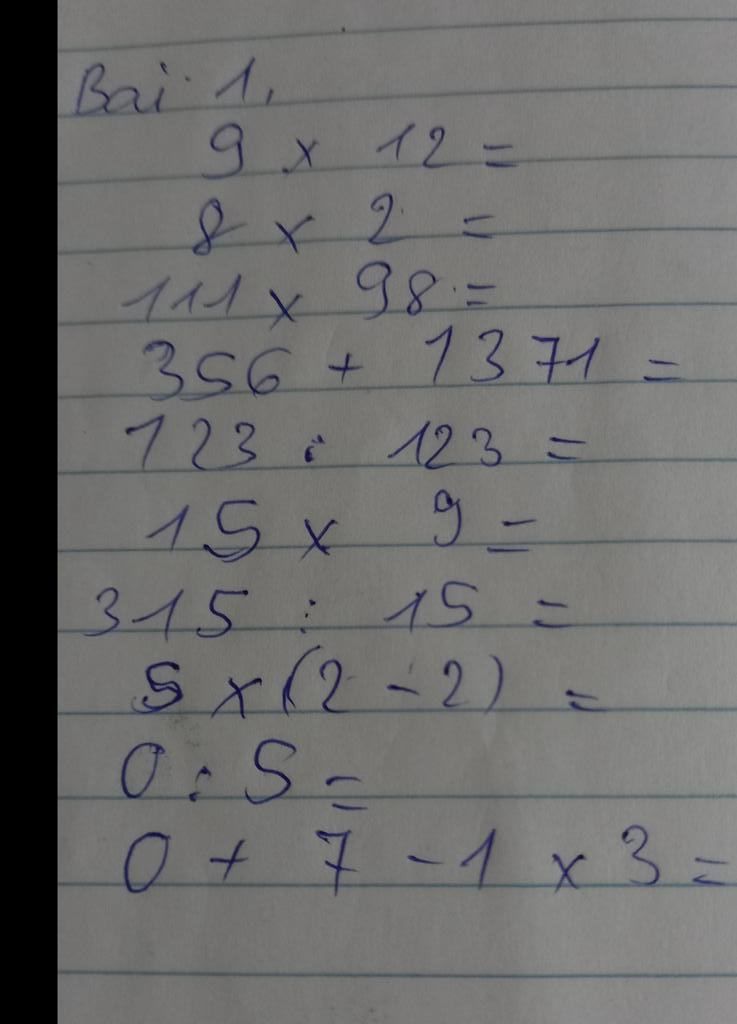 Bai 1.
9 x 12 =
8 x 2 =
111 x 98 =
356 + 1371 =
123 : 123 =
15 x 9 =
315 : 15 =
5 x (2 - 2) =
0 : 5 =
0 + 7 - 1 x 3 =